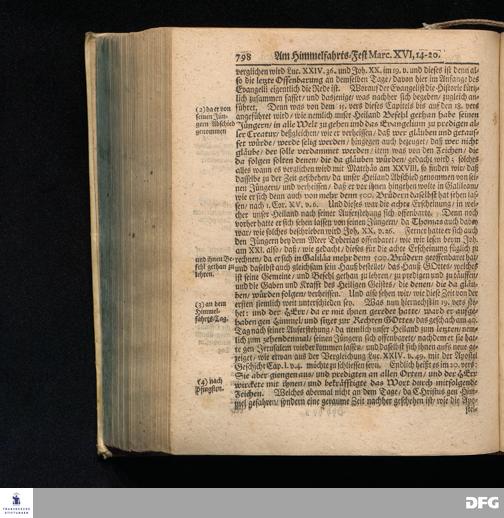 798 Am Himmelfahrts-Fest Marc. XVI, 14-20.
verglichen wird Luc. XXIV. 36. und Joh. XX. im 19. v. und dieses ist denn al-
so die letzte Offenbarung an demselben Tage/ davon hier im Anfange des
Evangelii eigentlich die Rede ist. Woraus der Evangelist die Historie kürtz-
lich zusammen fasset/ und dasjenige/ was nachher sich begeben/ zugleich an-
führet. Denn was von dem 15. vers dieses Capitels bis auf den 18. vers
(2) da er von
seinen Jün-
gern Abschied
genommen
angeführet wird/ wie nemlich unser Heiland Befehl gethan habe seinen
Jüngern/ in alle Welt zu gehen und das Evangelium zu predigen al-
ler Creatur/ deßgleichen/ wie er verheissen/ daß wer gläuben und getauf-
fet würde/ werde selig werden/ hingegen auch bezeuget/ daß wer nicht
gläube/ der solle verdammet werden/ item was von den Zeichen/ die
da folgen solten denen/ die da gläuben würden/ gedacht wird; solches
alles wann es verglichen wird mit Matthäo am XXVIII, so finden wir/ daß
dasselbe zu der Zeit geschehen/ da unser Heiland Abschied genommen von sei-
nen Jüngern/ und verheissen/ daß er vor ihnen hingehen wolte in Galiläam/
wie er sich denn auch von mehr denn 500. Brüdern daselbst hat sehen las-
sen/ nach 1. Cor. XV. v. 6. Und dieses war die achte Erscheinung/ in wel-
cher unser Heiland nach seiner Auferstehung sich offenbarte. Denn noch
vorher hatte er sich sehen lassen von seinen Jüngern/ da Thomas auch dabey
war/ wie solches beschrieben wird Joh. XX. v. 26. Ferner hatte er sich auch
den Jüngern bey dem Meer Tyberias offenbaret/ wie wir lesen beym Joh.
am XXI. also/ daß/ wie gedacht/ dieses für die achte Erscheinung füglich zu
und ihnen Be-
fehl gethan zu
lehren.
rechnen/ da er sich in Galiläa mehr denn 500. Brüdern geoffenbaret hat/
und daselbst auch gleichsam sein Hauß bestellet/ das Hauß GOttes/ welches
ist seine Gemeine/ und Befehl gethan zu lehren/ zu predigen und zu täuffen/
und die Gaben und Krafft des Heiligen Geistes/ die denen/ die da gläu-
ben/ würden folgen/ verheissen. Und also sehen wir/ wie diese Zeit von der
ersten ziemlich weit unterschieden sey. Was nun hiernechst im 19. vers ste-
(3) an dem
Himmel-
fahrts-Tag.
het: und der HErr/ da er mit ihnen geredet hatte/ ward er aufge-
haben gen Himmel/ und sitzet zur Rechten GOttes/ das geschah am 40.
Tag nach seiner Auferstehung/ da nemlich unser Heiland zum letzten/ nem-
lich zum zehendenmal/ seinen Jüngern sich offenbaret/ nachdem er sie hat-
te gen Jerusalem wiederkommen lassen/ und daselbst sich ihnen aufs neue ge-
zeiget/ wie etwan aus der Vergleichung Luc. XXIV. v. 49. mit der Apostel
Geschicht Cap. 1. v. 4. möchte zu schliessen seyn. Endlich heißt es im 20. vers:
(4) nach
Pfingsten.
Sie aber giengen aus/ und predigten an allen Orten/ und der HErr
wirckete mit ihnen/ und bekräfftigte das Wort durch mitfolgende
Zeichen. Welches abermal nicht an dem Tage/ da Christus gen Him-
mel gefahren/ sondern eine geraume Zeit nachher geschehen ist/ wie die Apo-
stel-
FRANCKESCHE
STIFTUNGEN
DFG